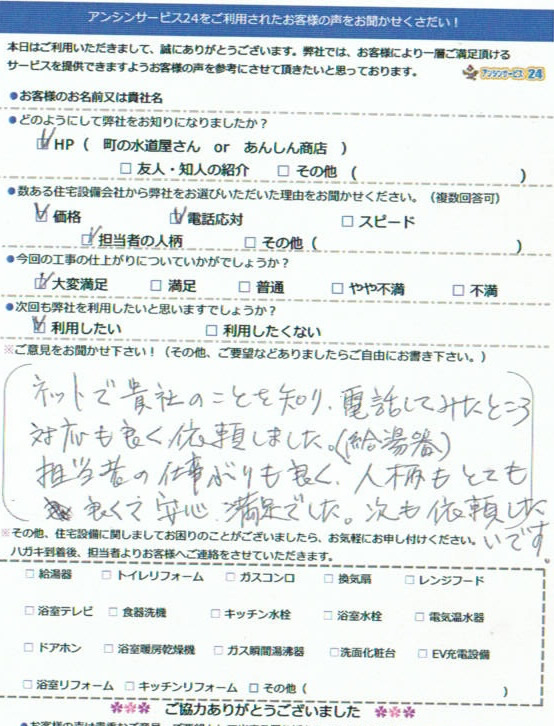 アンシンサービス24をご利用されたお客様の声をお聞かせください！
本日はご利用いただきまして、誠にありがとうございます。弊社では、お客様により一層ご満足頂ける
サービスを提供できますようお客様の声を参考にさせて頂きたいと思っております。
アンシンサービス24
●お客様のお名前又は貴社名
●どのようにして弊社をお知りになりましたか？
☑HP（ 町の水道屋さん or あんしん商店 ）
□友人・知人の紹介 □その他（ ）
●数ある住宅設備会社から弊社をお選びいただいた理由をお聞かせください。（複数回答可）
☑価格 ☑電話応対 □スピード
☑担当者の人柄 □その他（ ）
●今回の工事の仕上がりについていかがでしょうか？
☑大変満足 □満足 □普通 □やや不満 □不満
●次回も弊社を利用したいと思いますでしょうか？
☑利用したい □利用したくない
※ご意見をお聞かせ下さい！（その他、ご要望などありましたらご自由にお書き下さい。）
ネットで貴社のことを知り、電話してみたところ
対応も良く依頼しました。（給湯器）
担当者の仕事ぶりも良く、人柄もとても
良くて安心、満足でした。次も依頼した
いです。
※その他、住宅設備に関しましてお困りのことがございましたら、お気軽にお申し付けください。
ハガキ到着後、担当者よりお客様へご連絡をさせていただきます。
□給湯器 □トイレリフォーム □ガスコンロ □換気扇 □レンジフード
□浴室テレビ □食器洗機 □キッチン水栓 □浴室水栓 □電気温水器
□ドアホン □浴室暖房乾燥機 □ガス瞬間湯沸器 □洗面化粧台 □EV充電設備
□浴室リフォーム □キッチンリフォーム □その他（ ）
ご協力ありがとうございました